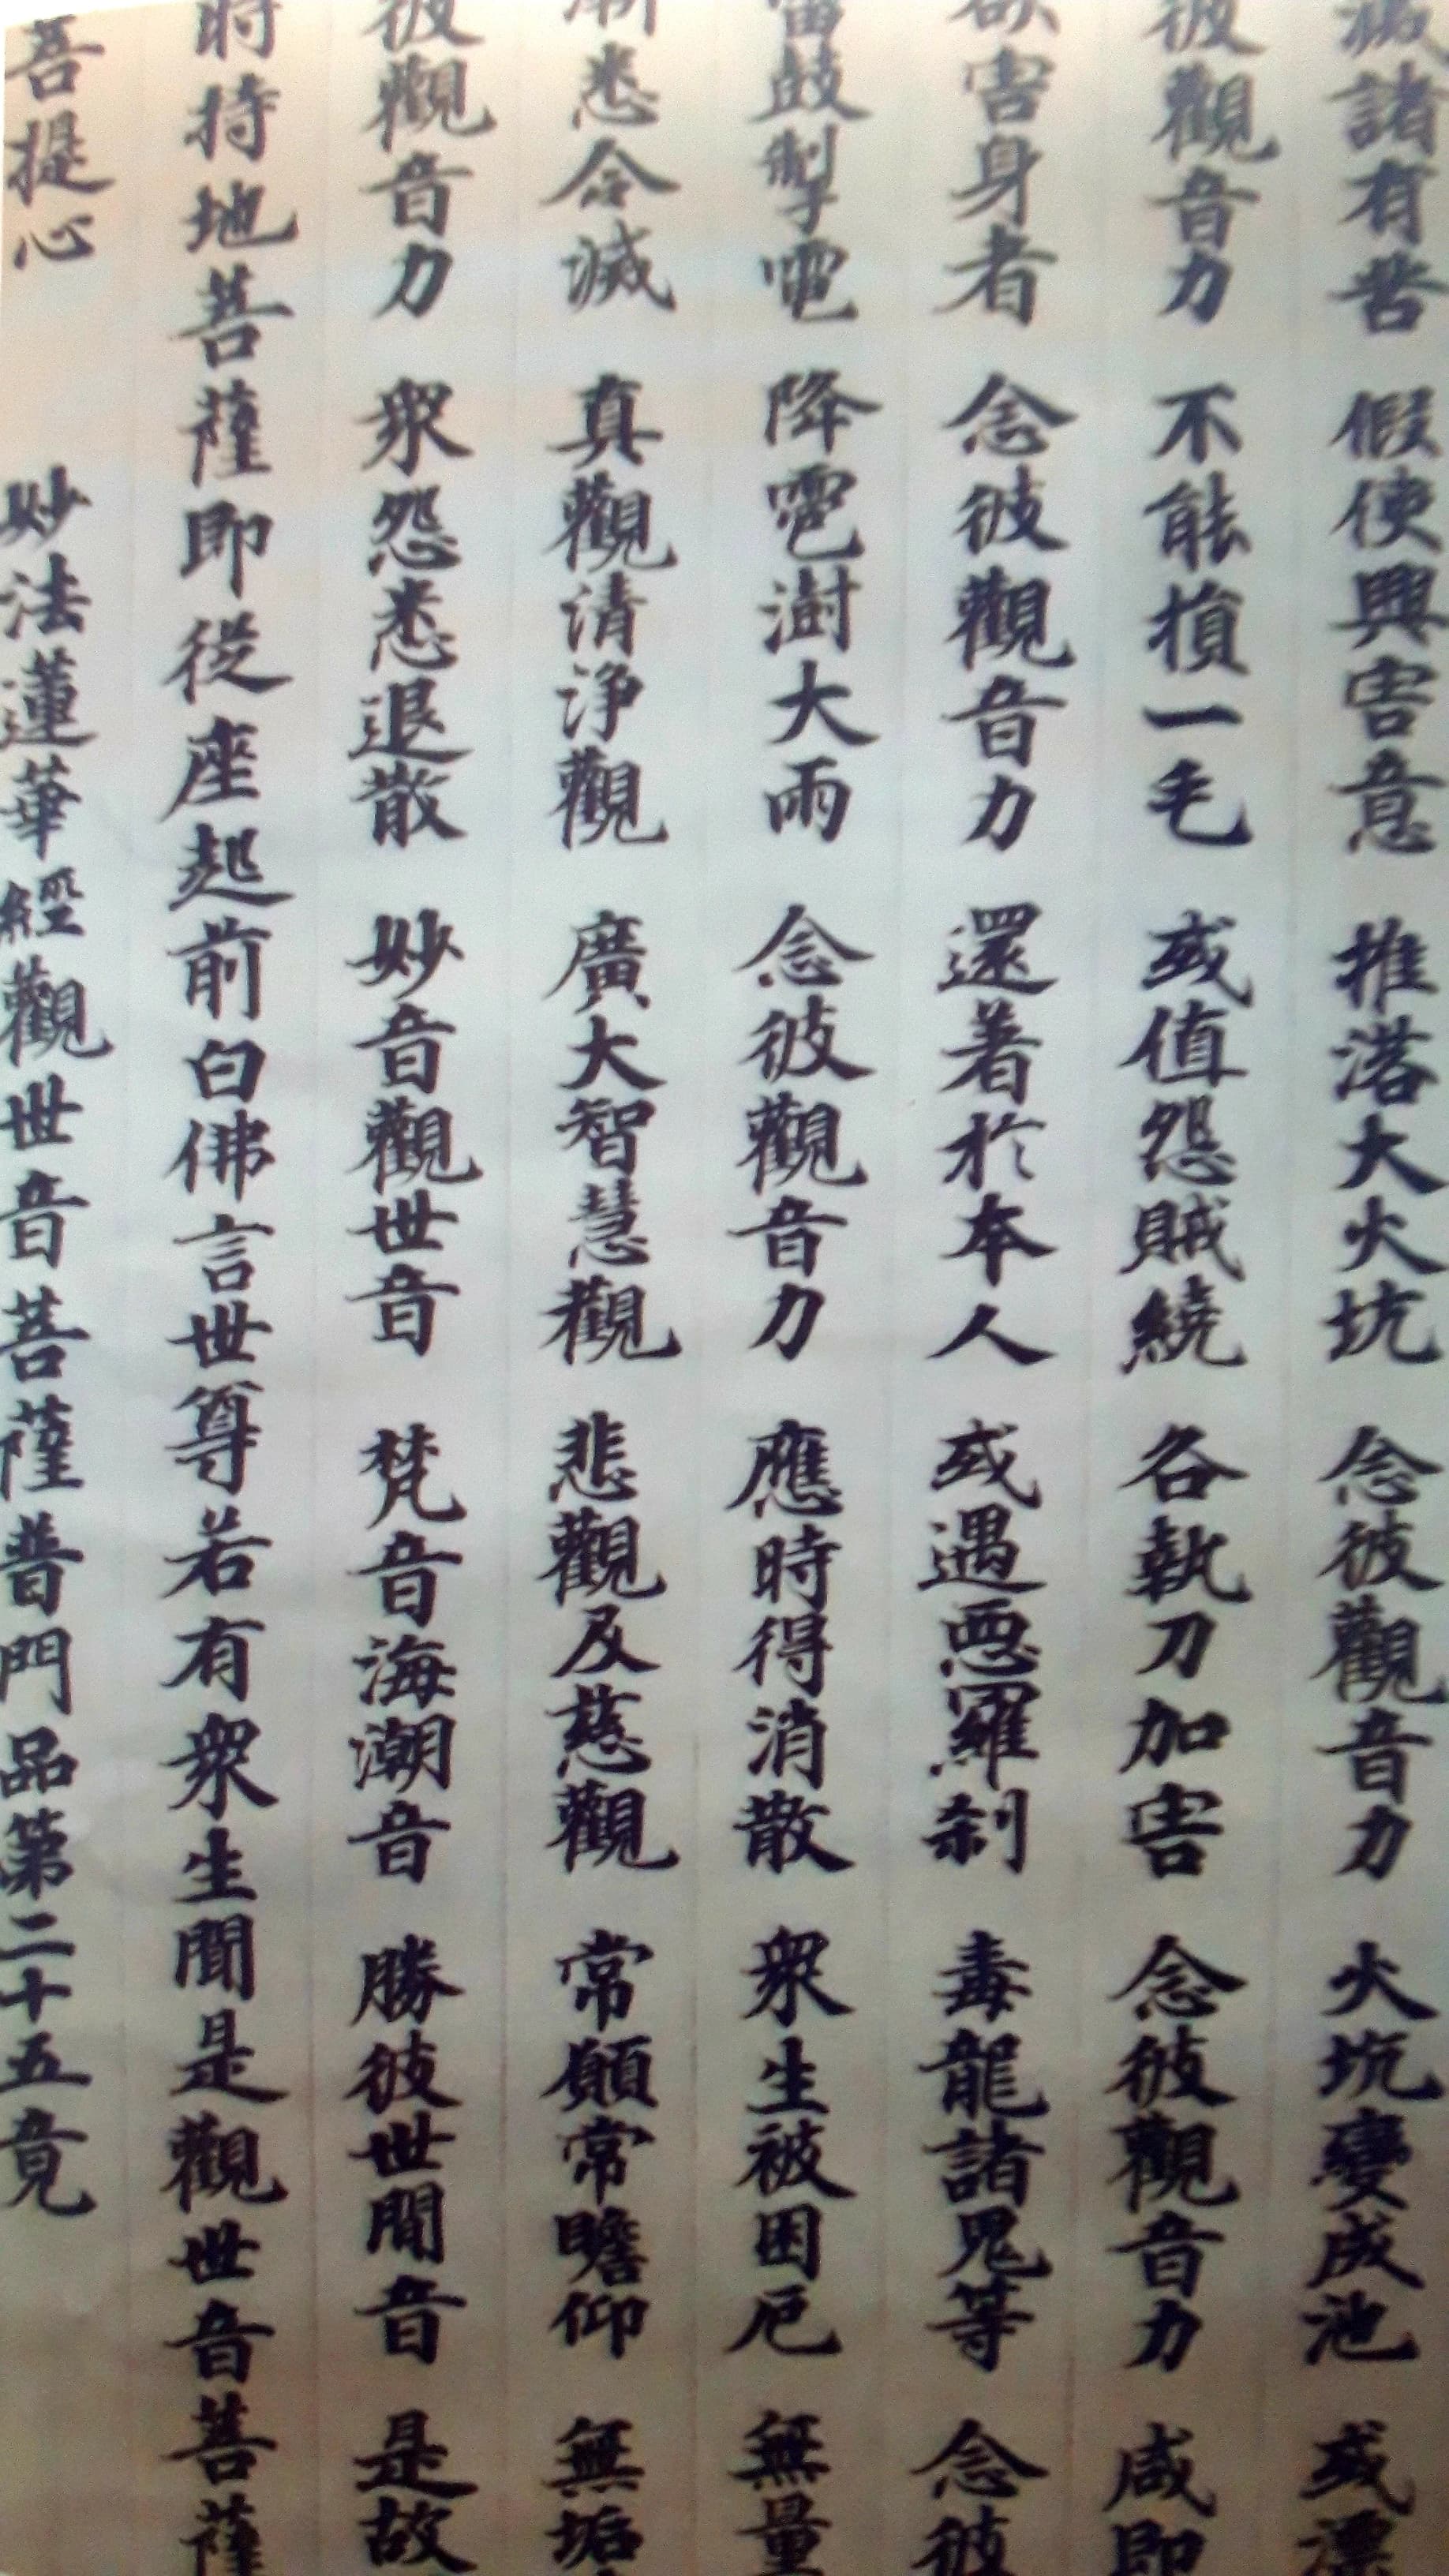 滅諸有苦 假使興害意 推落大火坑 念彼觀音力 火坑變成池 或漂
彼觀音力 不能損一毛 或值怨賊繞 各執刀加害 念彼觀音力 咸即
欲害身者 念彼觀音力 還著於本人 或遇惡羅刹 毒龍諸鬼等 念彼
雷鼓掣電 降雹澍大雨 念彼觀音力 應時得消散 衆生被困厄 無量
漸悉令滅 真觀清淨觀 廣大智慧觀 悲觀及慈觀 常願常瞻仰 無垢
彼觀音力 衆怨悉退散 妙音觀世音 梵音海潮音 勝彼世間音 是故
時持地菩薩即從座起前白佛言世尊若有衆生聞是觀世音菩薩
菩提心 妙法蓮華經觀世音菩薩普門品第二十五竟